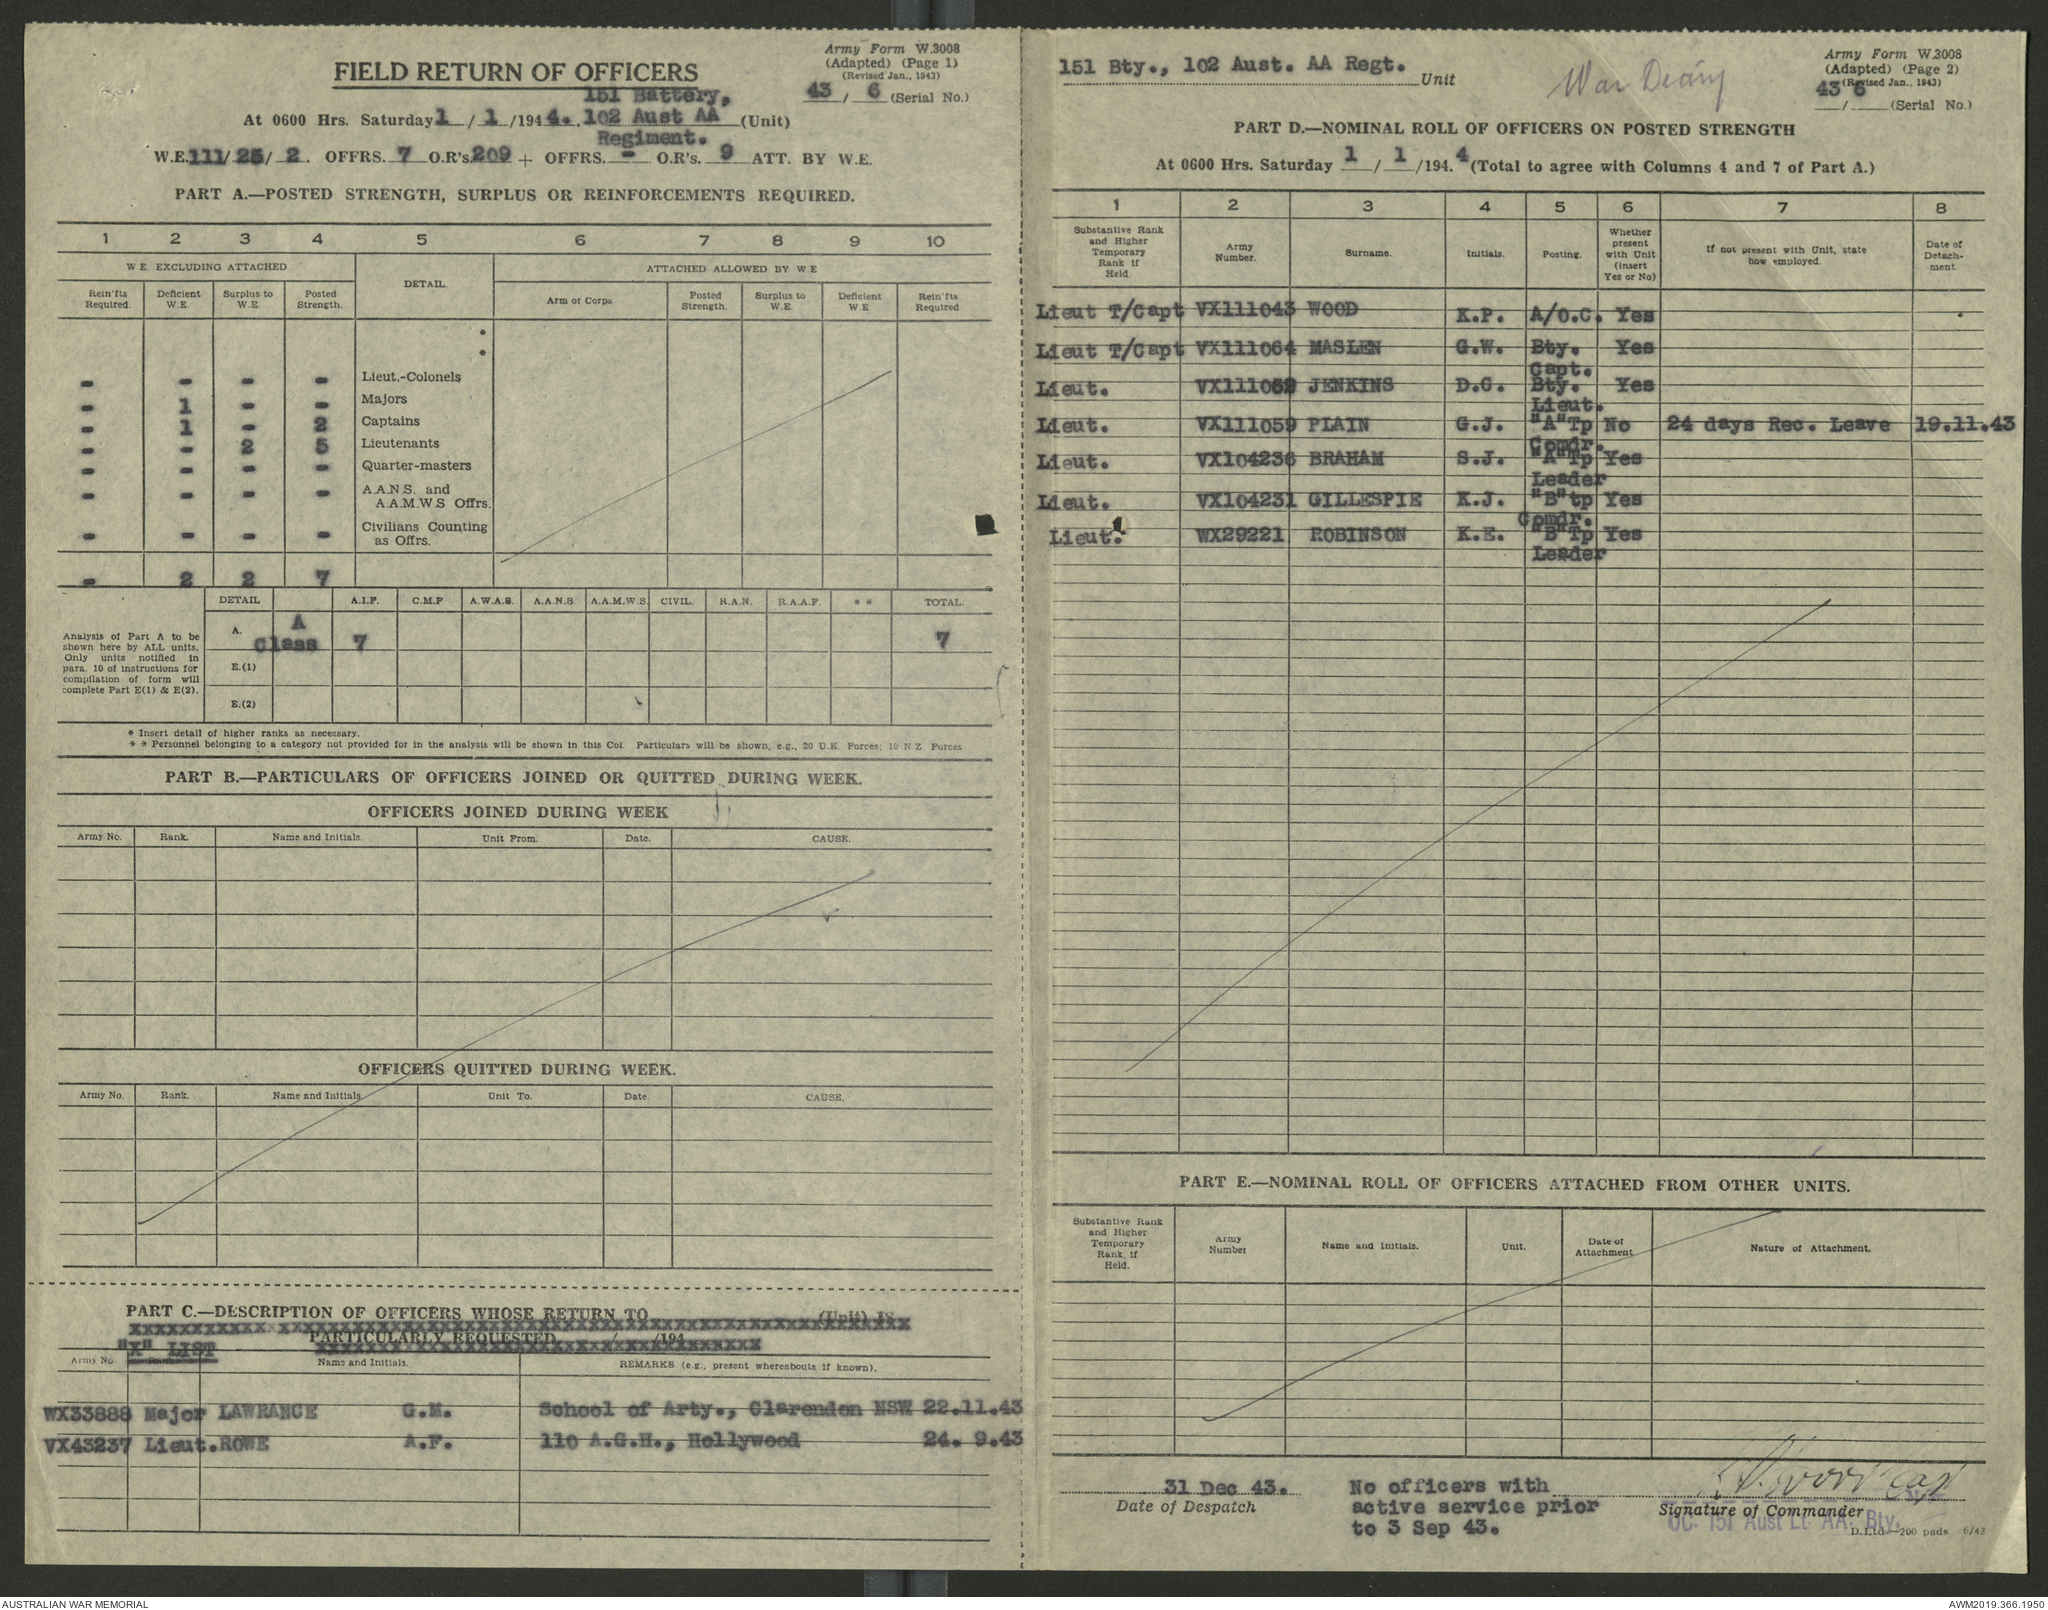 Army Form W.3008
(Adapted) (Page 1)
(Revised Jan., 1943)
43 / 6 (Serial No.)
FIELD RETURN OF OFFICERS
151 Battery,
At 0600 Hrs. Saturday 1 / 1 /1944. 102 Aust AA (Unit)
Regiment.
W.E. 111/ 25/ 2. OFFRS. 7 O.R's. 209 + OFFRS. - O.R's. 9 ATT. BY W.E.
PART A.—POSTED STRENGTH, SURPLUS OR REINFORCEMENTS REQUIRED.
1 2 3 4 5 6 7 8 9 10
W.E. EXCLUDING ATTACHED DETAIL. ATTACHED ALLOWED BY W.E
Rein'fts Required. Deficient W.E. Surplus to W.E. Posted Strength. Arm or Corps Posted Strength. Surplus to W.E. Deficient W E Rein'fts Required
*
*
- - - - Lieut.-Colonels
- 1 - - Majors
- 1 - 2 Captains
- - 2 5 Lieutenants
- - - - Quarter-masters
- - - - A.A.N.S. and A.A.M.W.S Offrs.
- - - - Civilians Counting as Offrs.
- 2 2 7
DETAIL A.I.F. C.M.F A.W.A.S. A.A.N.S. A.A.M.W.S. CIVIL. R.A.N. R.A.A.F. * * TOTAL.
Analysis of Part A to be
shown here by ALL units.
Only units notified in
para. 10 of instructions for
compilation of form will
complete Part E(1) & E(2).
A. A Class 7 7
E.(1)
E.(2)
* Insert detail of higher ranks as necessary.
* * Personnel belonging to a category not provided for in the analysis will be shown in this Col. Particulars will be shown, e.g., 20 U.K. Forces; 10 N Z. Forces
PART B.—PARTICULARS OF OFFICERS JOINED OR QUITTED DURING WEEK.
OFFICERS JOINED DURING WEEK
Army No. Rank. Name and Initials. Unit From. Date. CAUSE.
OFFICERS QUITTED DURING WEEK.
Army No. Rank. Name and Initials Unit To. Date. CAUSE.
PART C.—DESCRIPTION OF OFFICERS WHOSE RETURN TO (Unit) IS
PARTICULARLY REQUESTED / /194
"X" LIST
Army No Rank. Name and Initials. REMARKS (e.g., present whereabouts if known).
WX33888 Major LAWRANCE G.M. School of Arty., Clarendon NSW 22.11.43
VX43237 Lieut. ROWE A.F. 110 A.G.H., Hollywood 24. 9.43
151 Bty., 102 Aust. AA Regt. Unit
War Deary
Army Form W.3008
(Adapted) (Page 2)
(Revised Jan., 1943)
43 6
/ (Serial No.)
PART D.—NOMINAL ROLL OF OFFICERS ON POSTED STRENGTH
At 0600 Hrs. Saturday 1 / 1 /194. 4 (Total to agree with Columns 4 and 7 of Part A.)
1 2 3 4 5 6 7 8
Substantive Rank and Higher Temporary Rank if Held. Army Number. Surname. Initials. Posting. Whether present with Unit (insert Yes or No) If not present with Unit, state how employed. Date of Detach- ment
Lieut T/Capt VX111043 WOOD K.P. A/O.C. Yes
Lieut T/Capt VX111064 MASLEN G.W. Bty. Capt. Yes
Lieut. VX111052 JENKINS D.C. Bty. Lieut. Yes
Lieut. VX111059 PLAIN G.J. "A"Tp Comdr. No 24 days Rec. Leave 19.11.43
Lieut. VX104236 BRAHAM S.J. "A"Tp Leader Yes
Lieut. VX104231 GILLESPIE K.J. "B"tp Comdr. Yes
Lieut. WX29221 ROBINSON K.E. "B"Tp Leader Yes
PART E.—NOMINAL ROLL OF OFFICERS ATTACHED FROM OTHER UNITS.
Substantive Rank and Higher Temporary Rank, if Held. Army Number Name and Initials. Unit. Date of Attachment Nature of Attachment.
31 Dec 43.
Date of Despatch
No officers with
active service prior
to 3 Sep 43.
Signature of Commander
OC. 151 Aust Lt AA. Bty.
D.Ltd—200 pads 6/43
AUSTRALIAN WAR MEMORIAL
AWM2019.366.1950